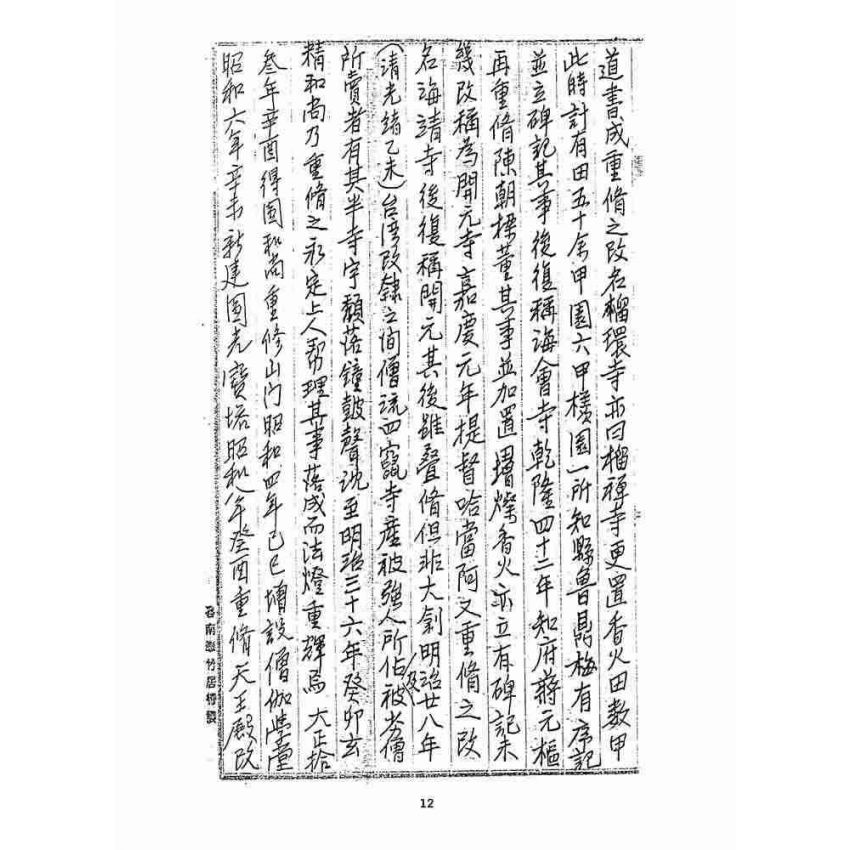 道書成重脩之改名榴環寺亦曰榴禅寺更置香火田数甲
此時計有田五十余甲園六甲檨園一所知縣魯鼎梅有序記
並立碑記其事後復稱海會寺乾隆四十二年知府蔣元樞
再重脩陳朝樑董其事並加置増燦香火亦立有碑記未
幾改稱為開元寺嘉慶元年提督哈當阿又重脩之改
名海靖寺後復稱開元其後雖叠脩但非大創明治廿八年
(清光緒乙未)台湾改隸之间僧流四竄寺産被強人所佔被劣僧
所賣者有其半寺宇頽落鐘鼓聲沈至明治三十六年癸卯玄
精和尚乃重脩之永定上人帮理其事落成而法燈重輝焉 大正拾
叁年辛酉得圓和尚重修山门昭和四年己巳増設僧伽學堂
昭和六年辛未新建圓光寶塔昭和八年癸酉重脩天王殿改
12